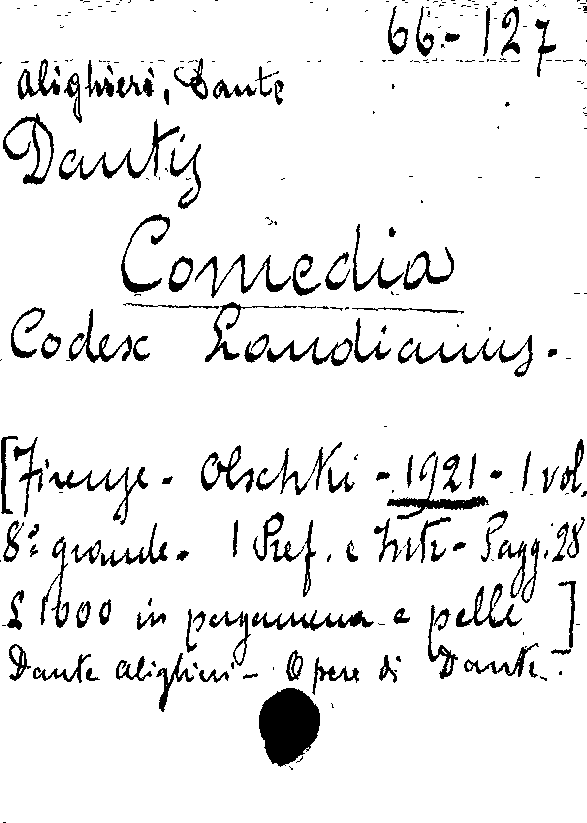 66-127
Alighieri, Dante
Dantis
Comedia
Codex Landianus.
[Firenze - Olschki - 1921 - 1 vol.
8° grande - 1 Pref. e Intr - Pagg. 28
£ 1000 in pergamena e pelle]
Dante Alighieri - Opere di Dante -